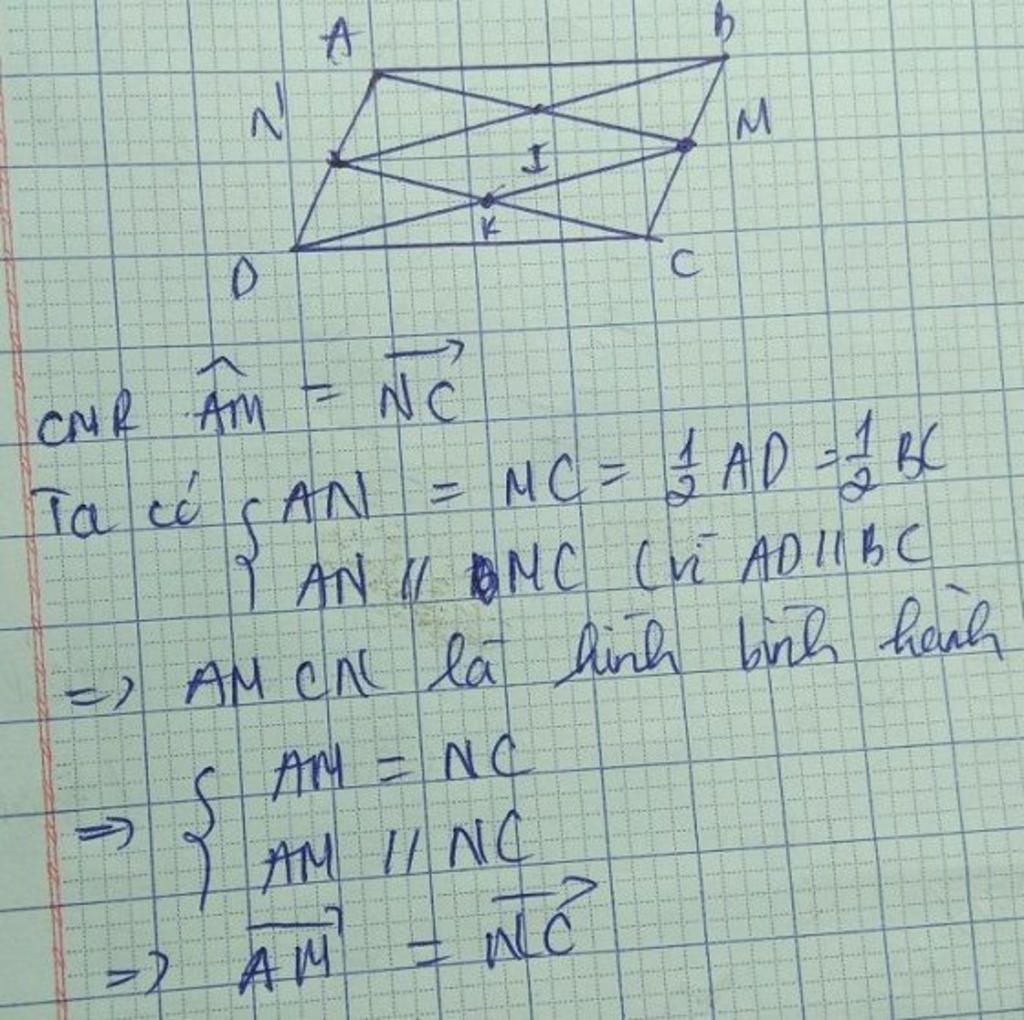 A B
N M
I
K
D C
CMR \widehat{AM} = \overrightarrow{NC}
Ta có { AN = MC = 1/2 AD = 1/2 BC
AN // MC (vì AD // BC
=> AMCN là hình bình hành
=> { AM = NC
AM // NC
=> \overrightarrow{AM} = \overrightarrow{NC}